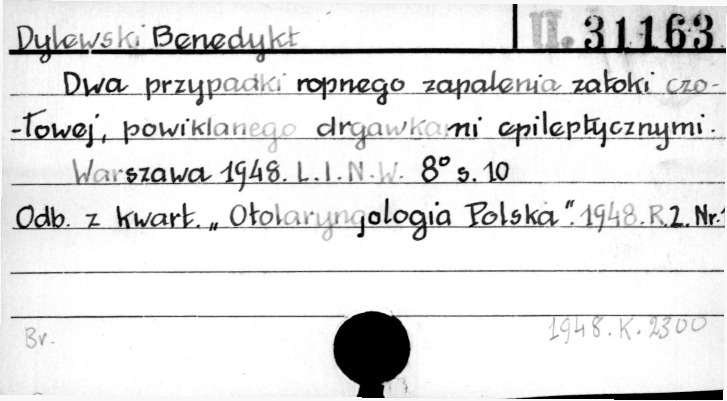 Dylewski Benedykt II. 31163
Dwa przypadki ropnego zapalenia zatoki czo-
-łowej, powikłanego drgawkami epileptycznymi.
Warszawa 1948. L.I.N.W. 8° s. 10
Odb. z kwart. „Otolaryngologia Polska”. 1948. R.2. Nr.1
Br. 1948. K. 2300